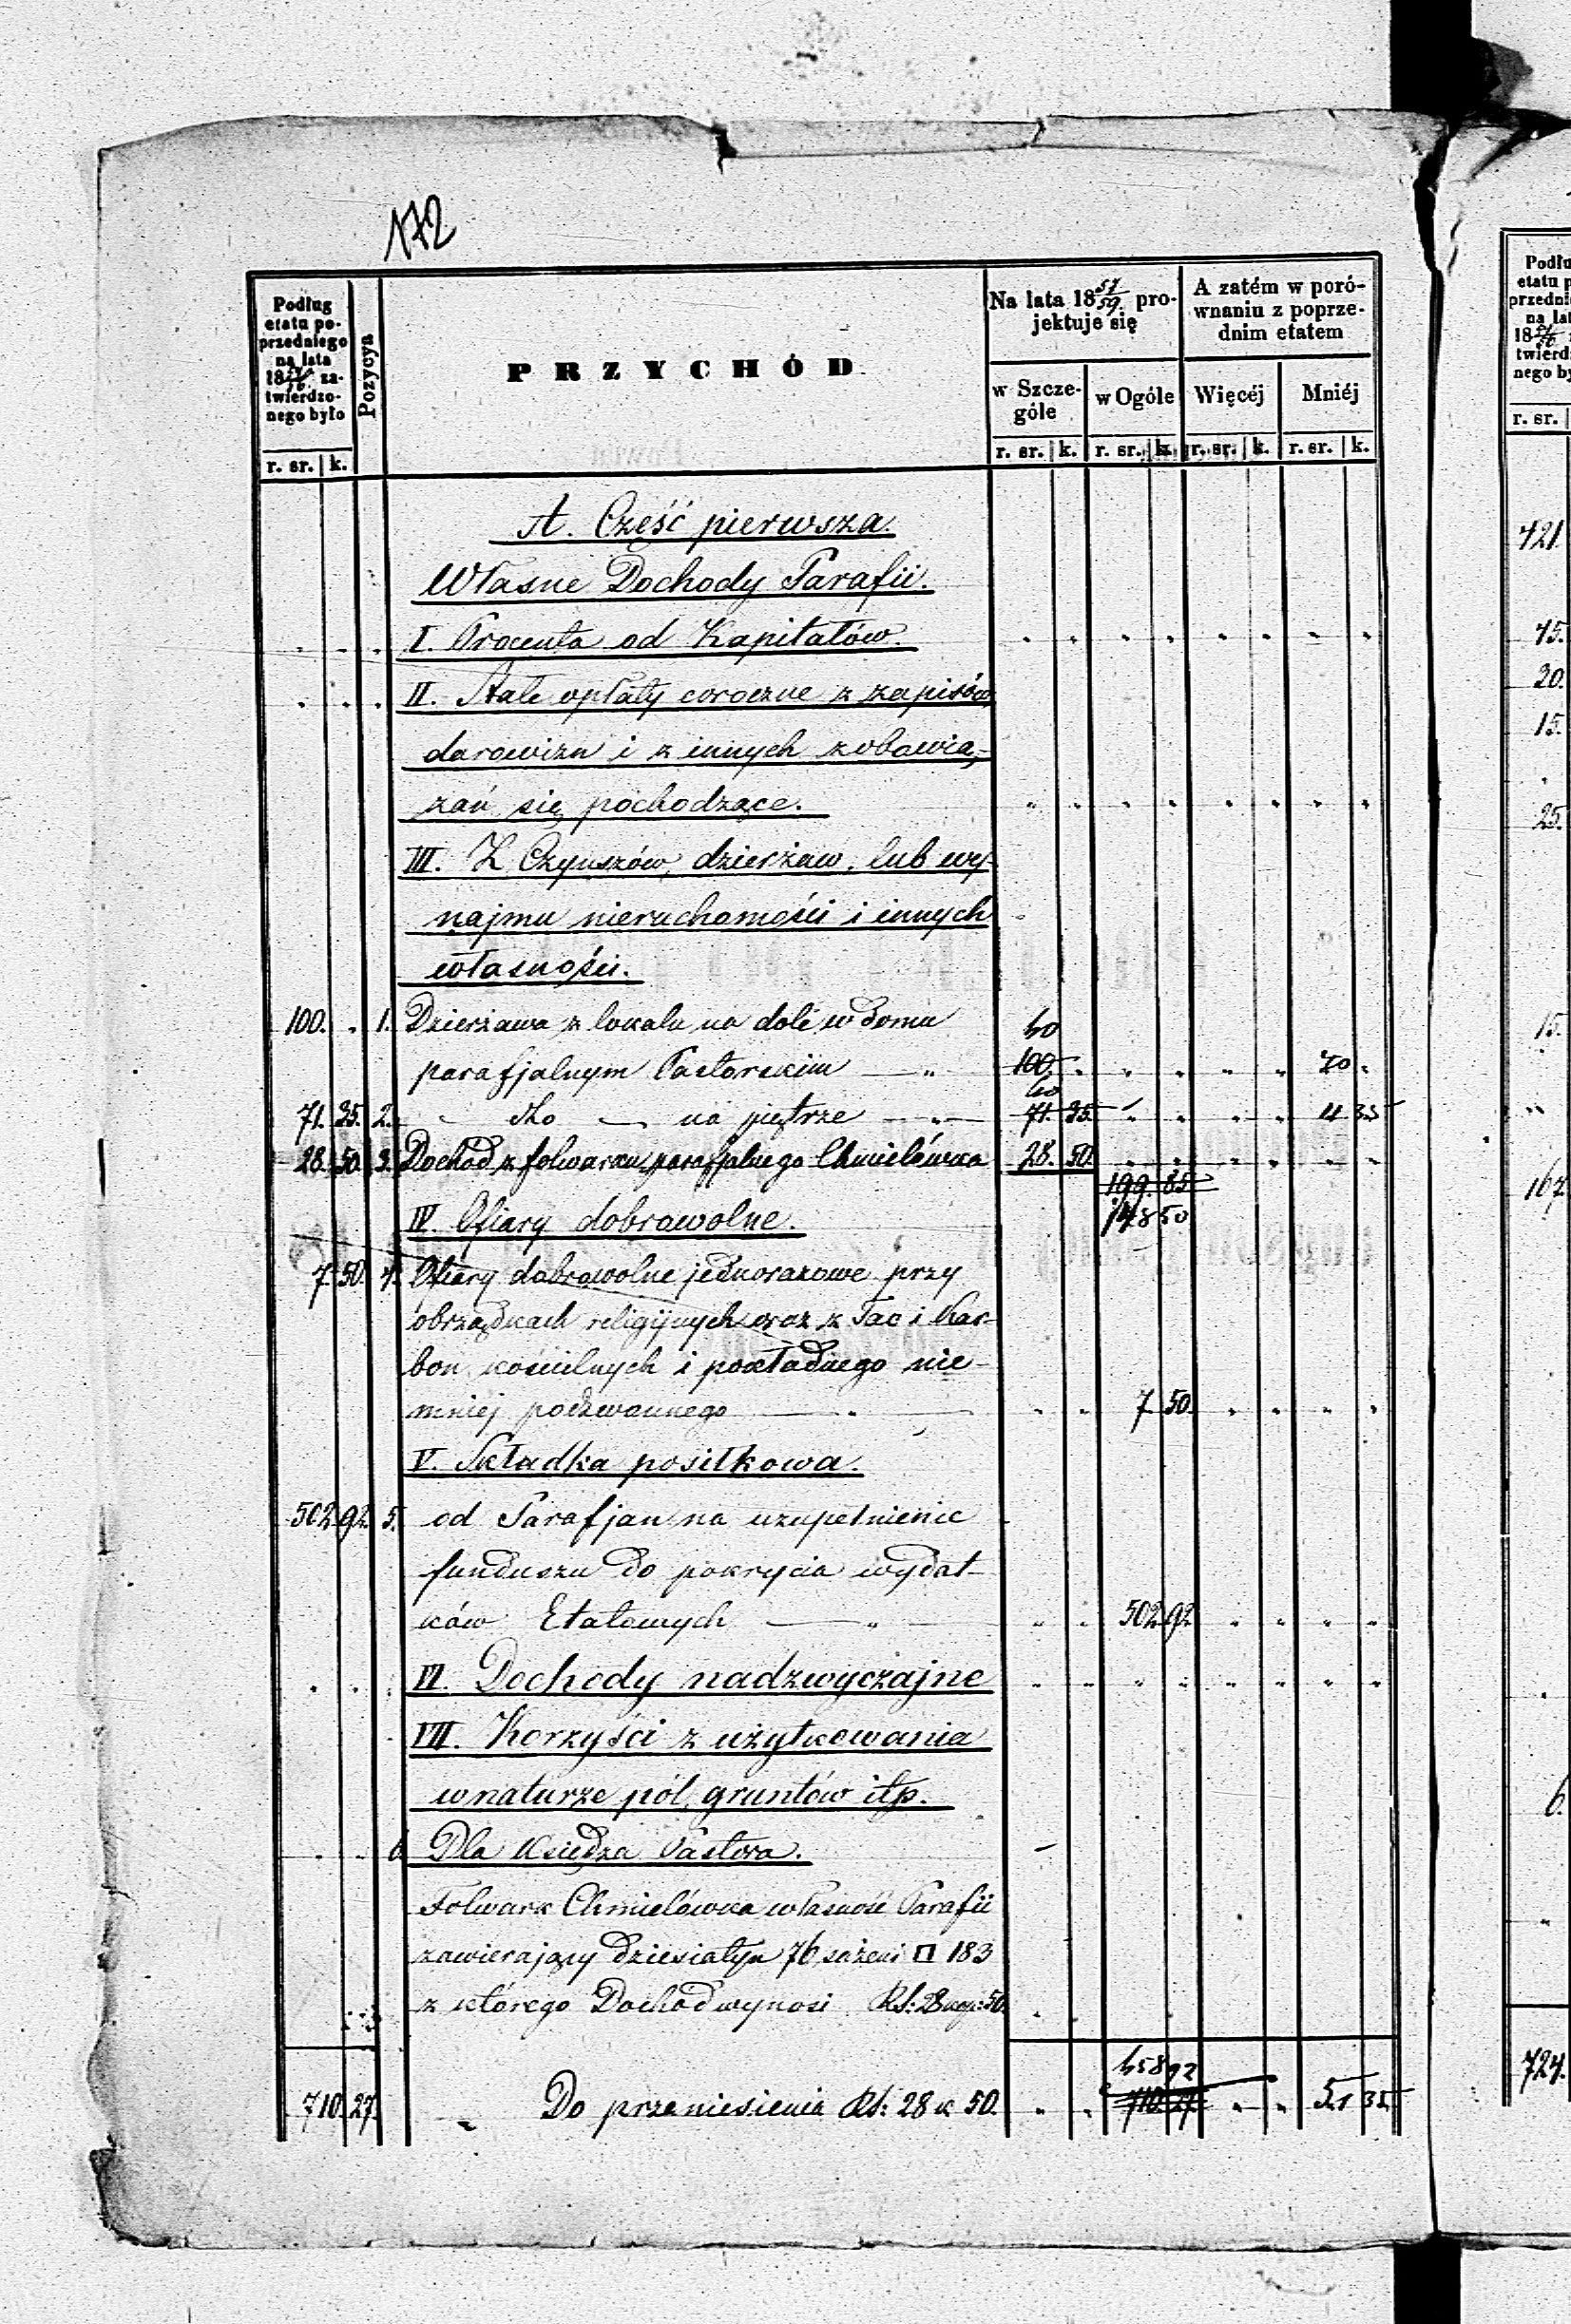 172
Podług etatu poprzedniego na lata 18 54/56 zatwierdzonego było
Pozycya
PRZYCHÓD
Na lata 18 57/59 projektuje się
A zatém w porównaniu z poprzednim etatem
w Szczególe
w Ogóle
Więcéj
Mniéj
r. sr. k. r. sr. k. r. sr. k. r. sr. k. r. sr. k.
A. Część pierwsza.
Własne Dochody Parafii.
I. Procenta od Kapitałów.
II. Stałe opłaty coroczne z zapisów,
darowizn i z innych zobowią-
zań się pochodzące.
III. Z Czynszów, dzierżaw, lub wy-
najmu nieruchomości i innych
własności.
100. 1. Dzierżawa z lokalu na dole w domu
parafjalnym Pastorskim 100. 
71. 35. 2. dto na piętrze 71. 35. 11 35
28. 50. 3. Dochód z folwarku parafjalnego Chmielówka 28. 50.
199. 85
148 50
IV. Ofiary dobrowolne.
7. 50. 4. Ofiary dobrowolne jednorazowe przy
obrządkach religijnych oraz z Tac i Kar-
bon kościelnych i pokładnego nie-
mniej podzwonnego 7 50.
V. Składka posiłkowa.
502. 92. 5. od Parafjan na uzupełnienie
funduszu do pokrycia wydat-
ków Etatowych 502 92
VI. Dochody nadzwyczajne
VII. Korzyści z użytkowania
w naturze pól, gruntów itp.
6 Dla Księdza Pastora.
Folwark Chmielówka własność Parafii
zawierający dziesiatyn 76 sażeni □ 183
z którego Dochód wynosi Rs: 28 kop: 50
658 92
710. 27. Do przeniesienia Rs: 28 k 50. 710. 27. 51 35
Podłu
etatu p
przednie
na lat
18
twierd
nego by
r. sr.
421.
45.
20.
15.
25.
15.
167
6.
724.